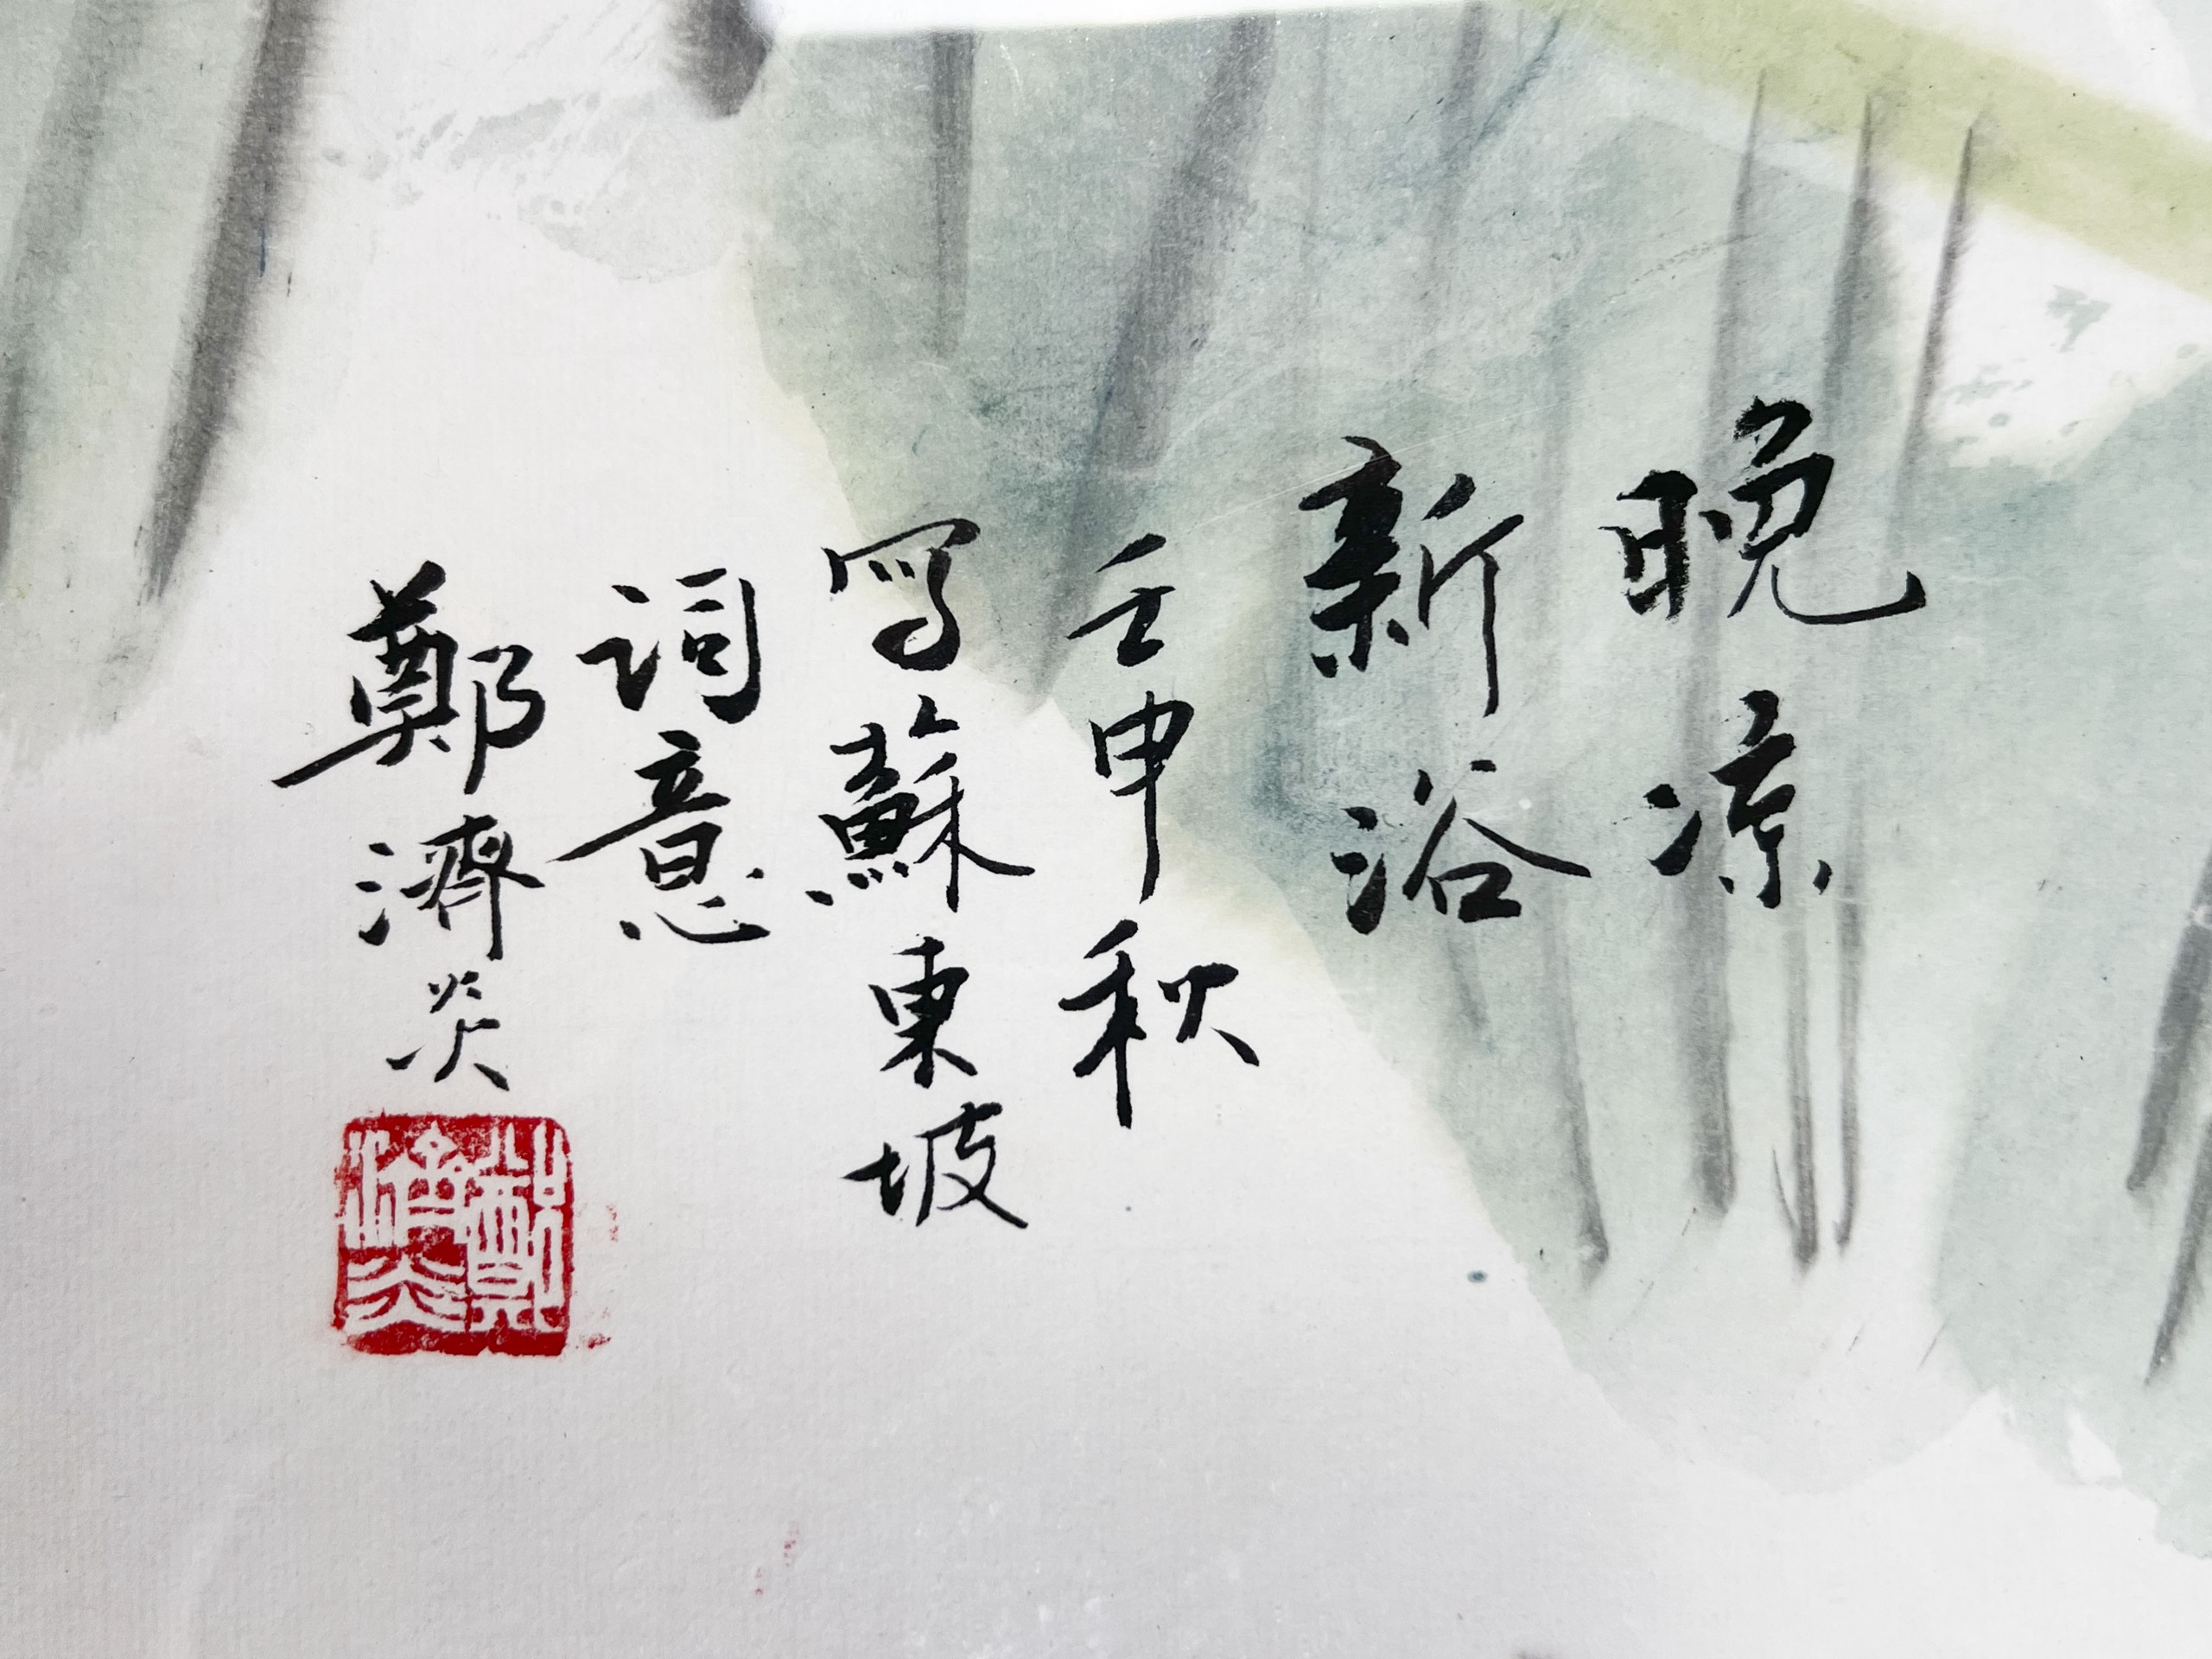 晚凉
新浴
壬申秋
寫蘇東坡
詞意
鄭濟炎
鄭濟炎